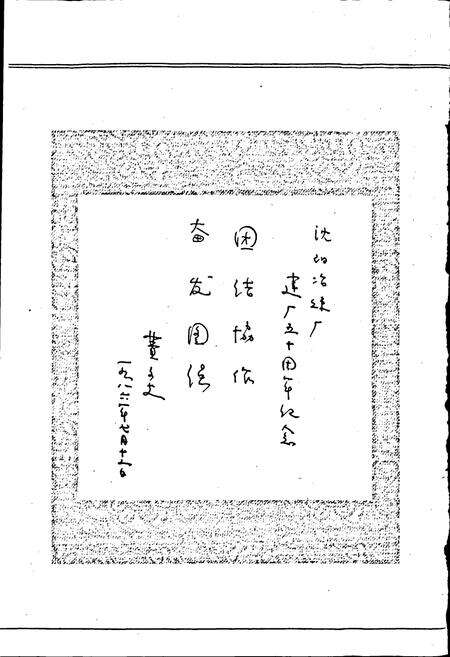 沈阳冶炼厂
建厂五十周年纪念
团结协作
奋发图强
费子文
一九八六年七月十五日